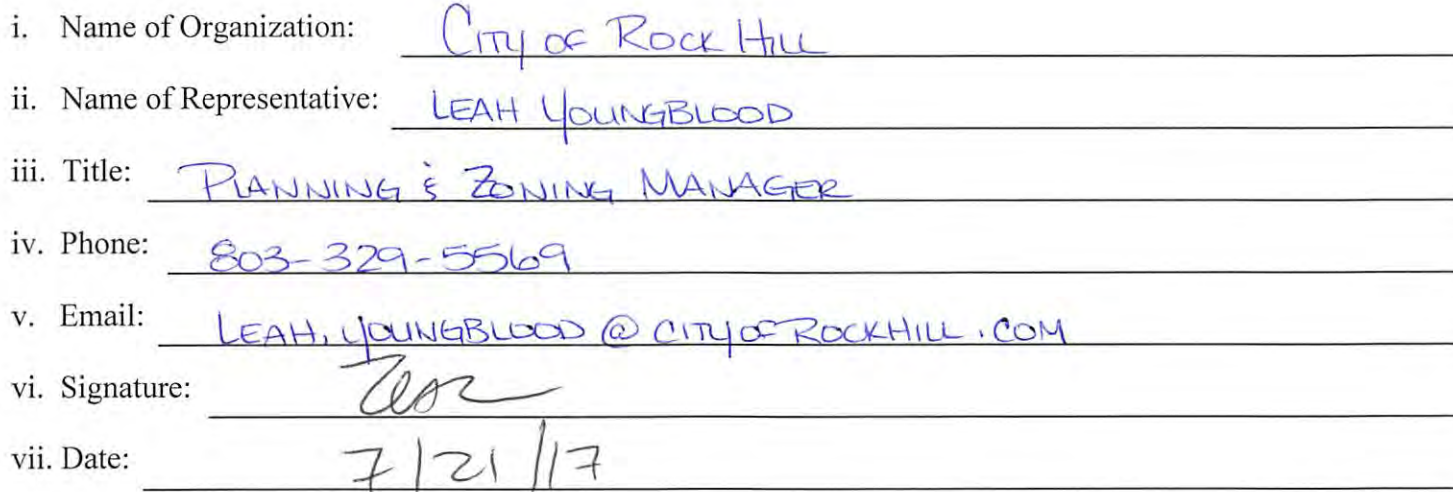 i. Name of Organization: CITY OF ROCK HILL
ii. Name of Representative: LEAH YOUNGBLOOD
iii. Title: PLANNING & ZONING MANAGER
iv. Phone: 803-329-5569
v. Email: LEAH.YOUNGBLOOD@CITYOFROCKHILL.COM
vi. Signature:
vii. Date: 7/21/17